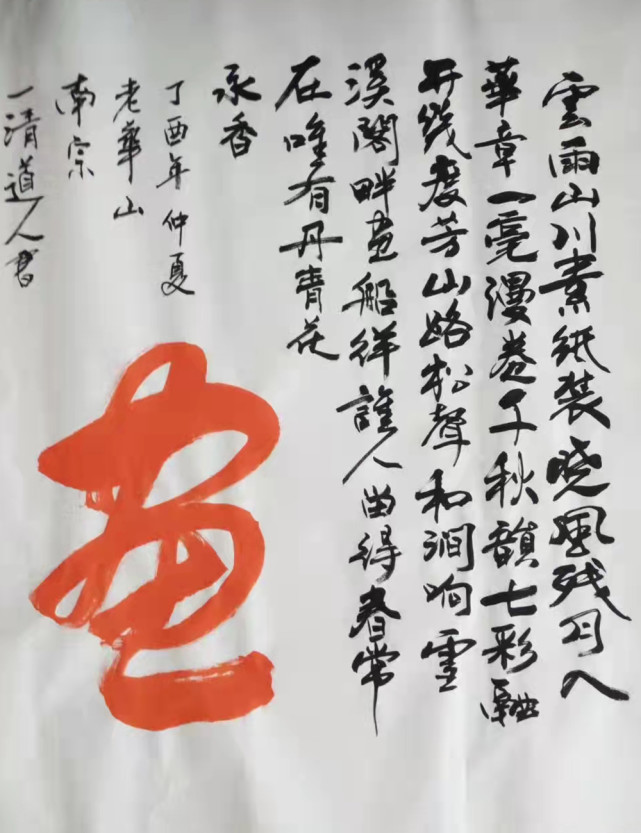 雲雨山川素紙装晓風残月入
華章一毫漫卷千秋韻七彩融
开幾度芳山路松聲和澗响雲
溪閣畔畫船徉誰人留得春常
在唯有丹青花
永香
丁酉年仲夏
老華山
南宗
一清道人書
畫